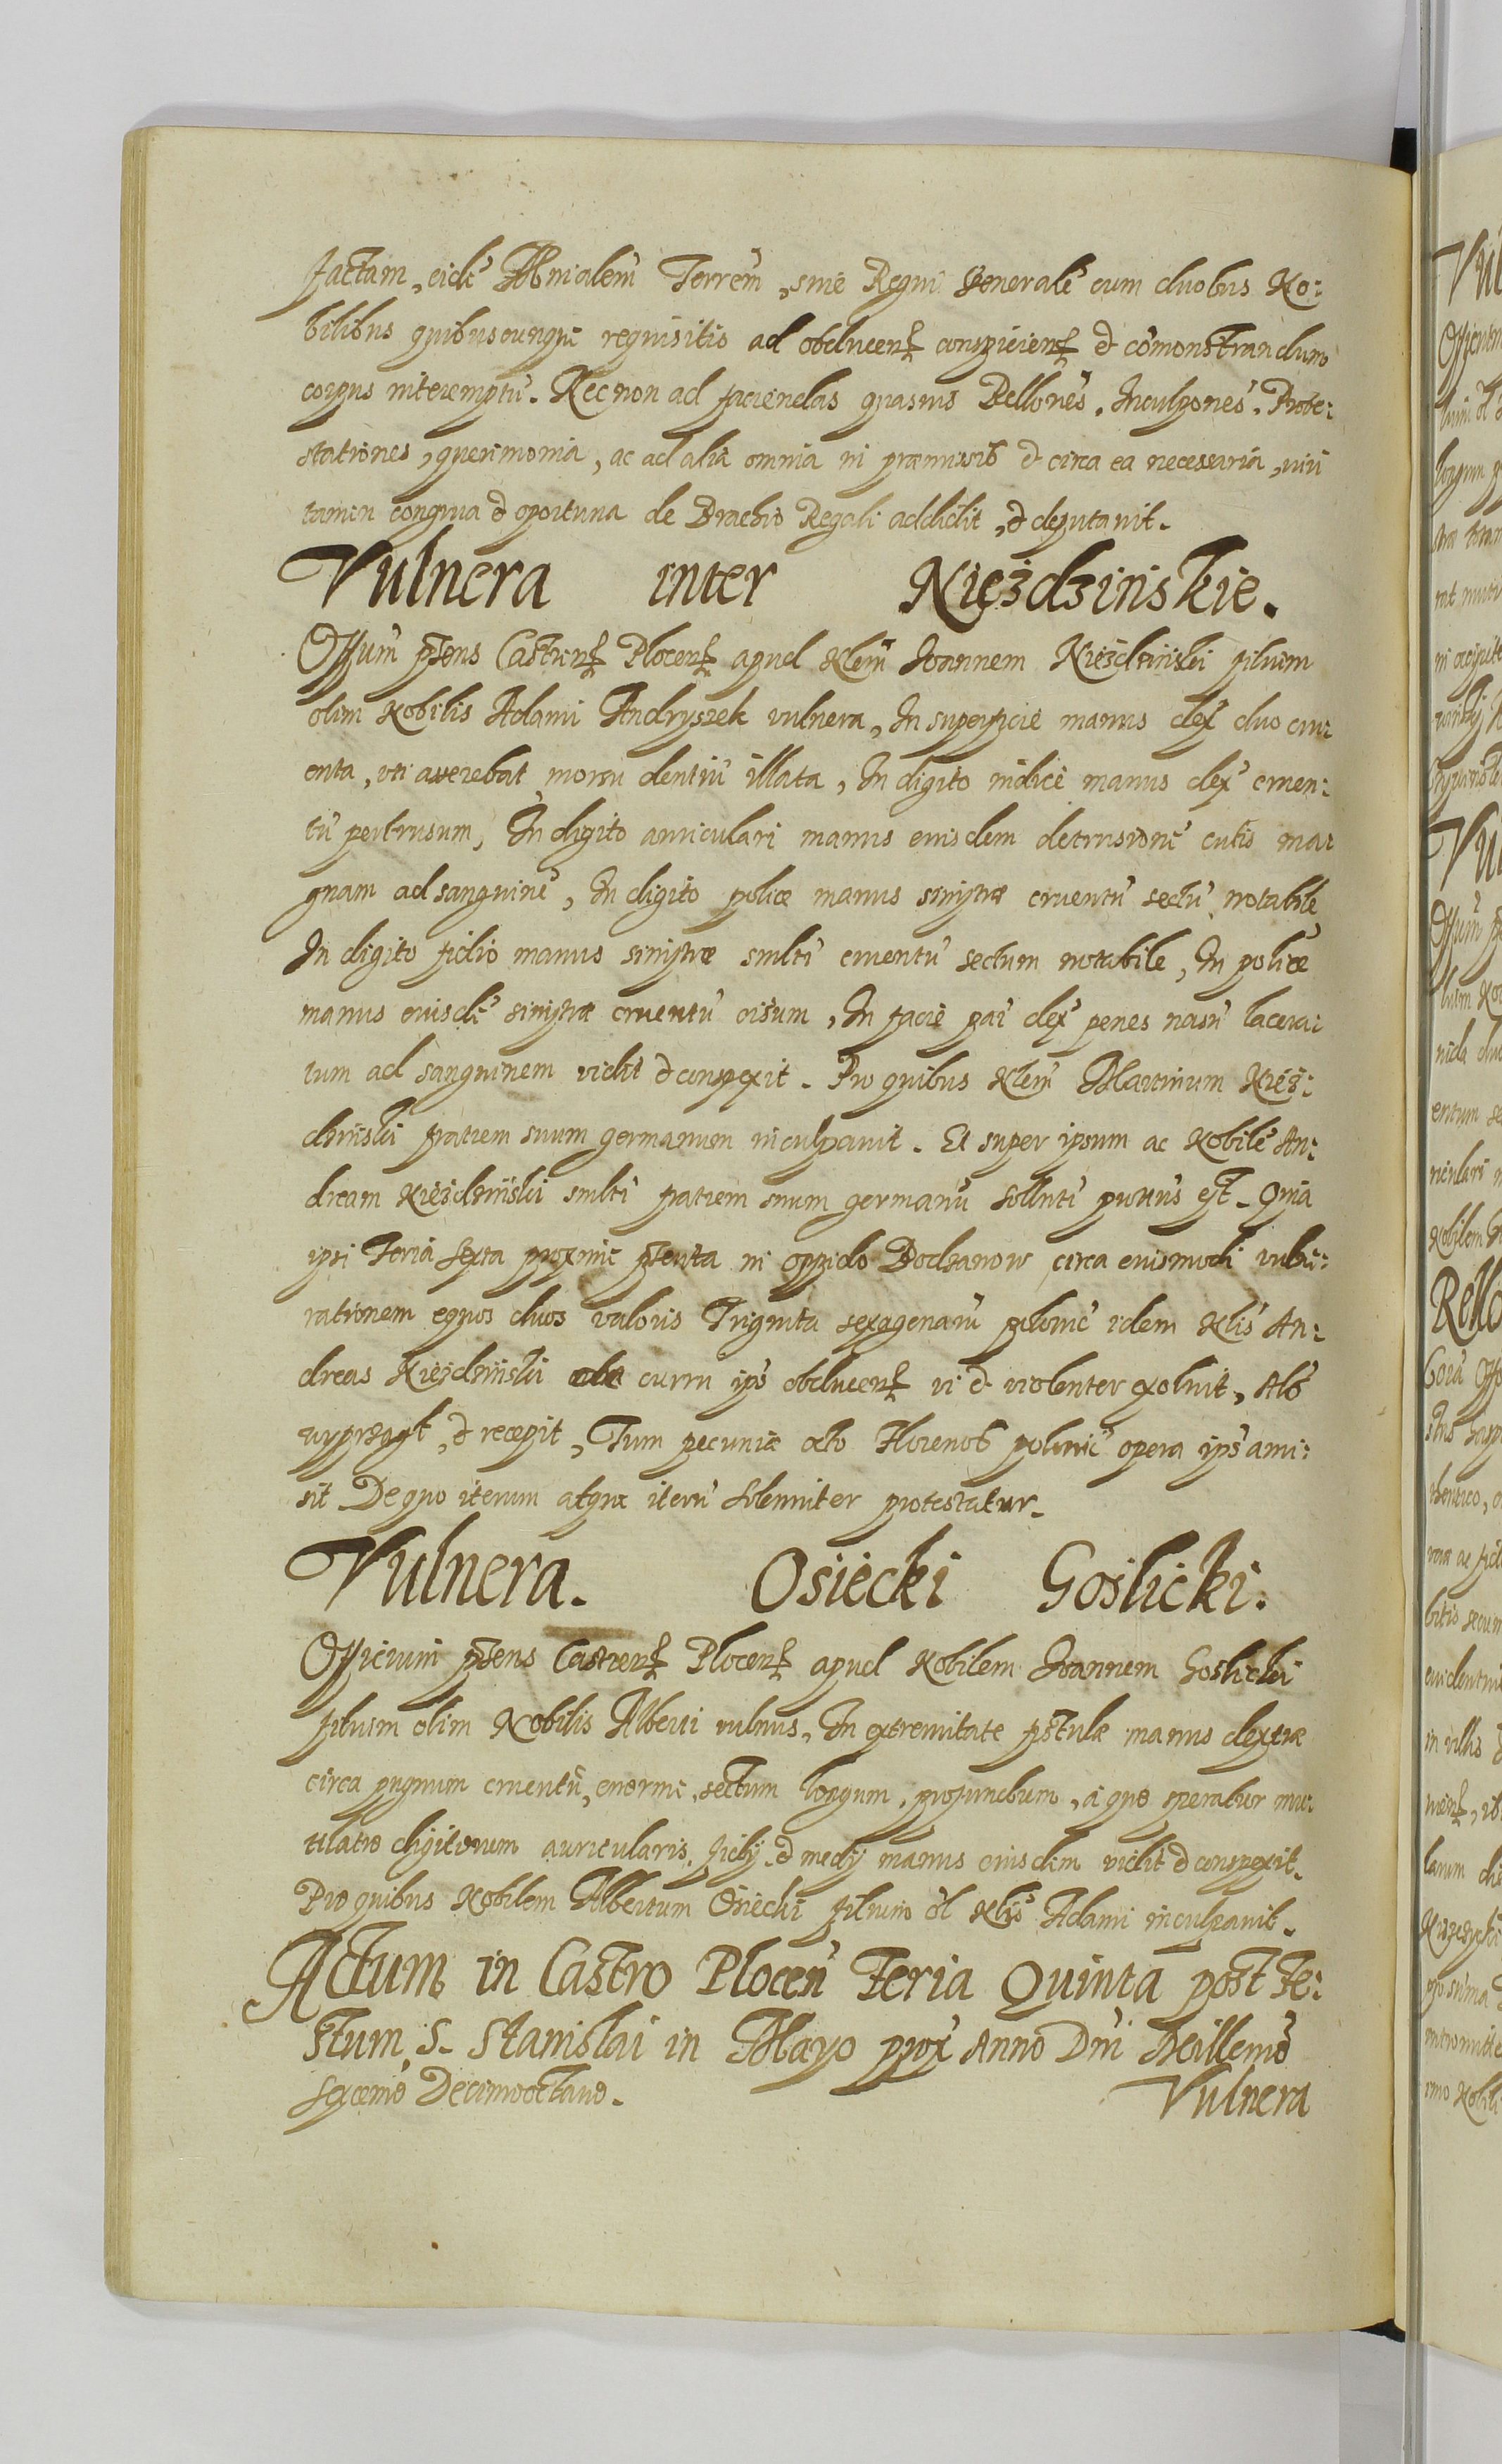 factam, eidē Mnialem̄ Terrem̄, siue Regni Generalē cum duobus No:
bilibus quibuscunque requisitis ad obducen conspicien & com̄onstrandum
corpus interemptū. Nec non ad faciendas quasuis Rellones̄. Inculpones̄. Prote:
stationes, querimonia, ac ad alia omnia in præmissis & circa ea necessaria,
tamen congrua & oportuna de Brachio Regali addidit, & deputauit.
Vulnera inter Nieździnskie.
Offum̄ pn̄s Castren Plocen apud Nlem̄ Joannem Niezdzinski filium
olim Nobilis Adami Andryszek vulnera, In superficie manus dex̄ duo cru:
enta, vti auerebat morsu dentiū illata, In digito indice manus dex̄ cruen:
tū pertrusum, In digito auriculari manus eiusdem detrusionē cutis ma:
gnam ad sanguinē, In digito police manus sinistræ cruentū sectū notabile
In digito fidio manus sinistræ smlti cruentū sectum notabile, In police
manus eiusdē sinistræ cruentū cisum, In facie par̄ dex̄ penes nasū lacera:
tum ad sanguinem vidit & conspexit. Pro quibus Nlem̄ Martinum Niez:
dzinski fratrem suum germanum inculpauit. Et super ipsum ac Nobilē An:
dream Niezdzinski smlti fratrem suum germanū sollnti est. Quia
ipsi Feria Sexta proxime in oppido Bodzanow circa euismodi vulne:
rationem equos duos valoris Triginta sexagenarū polonic̄ idem Nlis An:
dreas Niezdzinski curru ips̄ obducen vi & violenter exoluit, Als̄
wyprzągł, & recepit, Tum pecuniæ octo Florenos polonic̄ opera ips̄ ami:
sit De quo iterum atque iterū solenniter protestatur.
Vulnera. Osiecki Goslicki.
Officium pn̄s Castren Plocen apud Nobilem Joannem Goslicki
filium olim Nobilis Alberti vulnus, In extremitate manus dextræ
circa pugnum cruentū, enorme, sectum longum, profundum, a quo speratur mu:
tilatio digitorum auricularis, fidij & medij manus eiusdem vidit & conspexit.
Pro quibus Nobilem Albertum Osiecki filium ol Nlis Adami inculpauit.
Actum in Castro Plocen̄ Feria Quinta post Fe:
stum S. Stanislai in Mayo prox̄ Anno Dn̄i Millemo
Sexcenmo Decimooctauo.
Vulnera